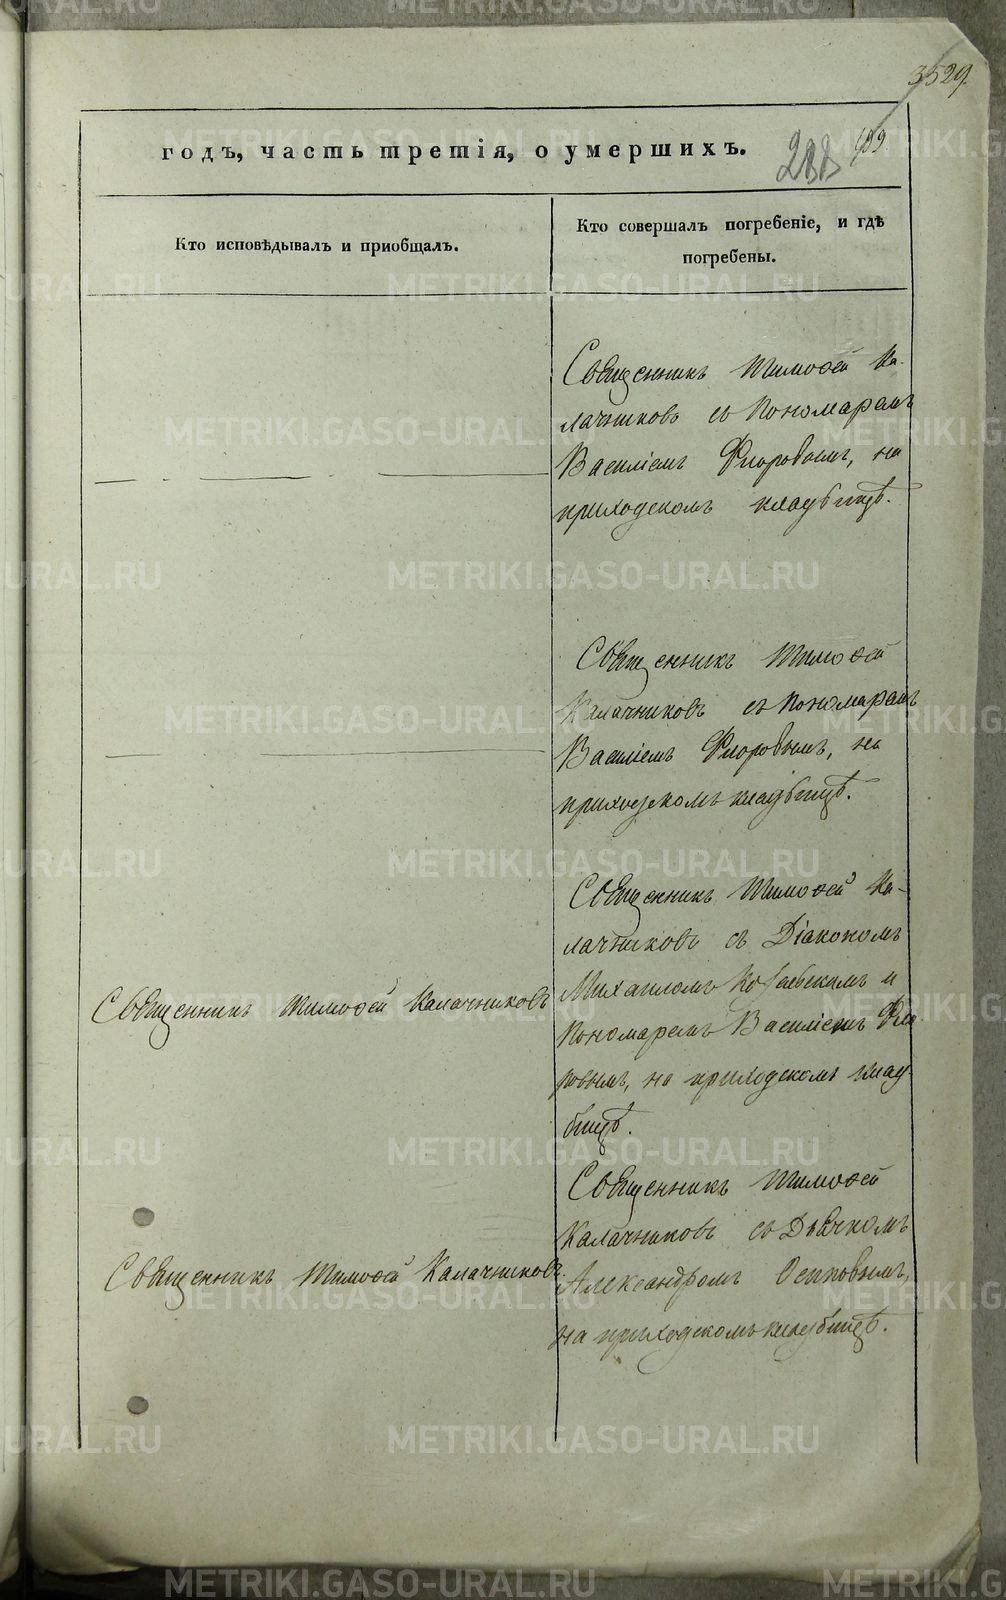 3529.
годъ, часть третія, о умершихъ.
199
Кто исповѣдывалъ и приобщалъ.
Кто совершалъ погребеніе, и гдѣ
погребены.
Священникъ Тимоѳей Ка-
лачниковъ съ Пономаремъ
Василіемъ Флоровымъ, на
приходскомъ кладбищѣ.
Священникъ Тимоѳей
Калачниковъ съ Пономаремъ
Василіемъ Флоровымъ, на
приходскомъ кладбищѣ.
Священникъ Тимоѳей Калачниковъ
Священникъ Тимоѳей Ка-
лачниковъ съ Діакономъ
Михаиломъ и
Пономаремъ Василіемъ Фло
ровымъ, на приходскомъ клад-
бищѣ.
Священникъ Тимоѳей Калачниковъ
Священникъ Тимоѳей
Калачниковъ съ Дьячкомъ
Александромъ Осиповымъ,
на приходскомъ кладбищѣ.
METRIKI.GASO-URAL.RU